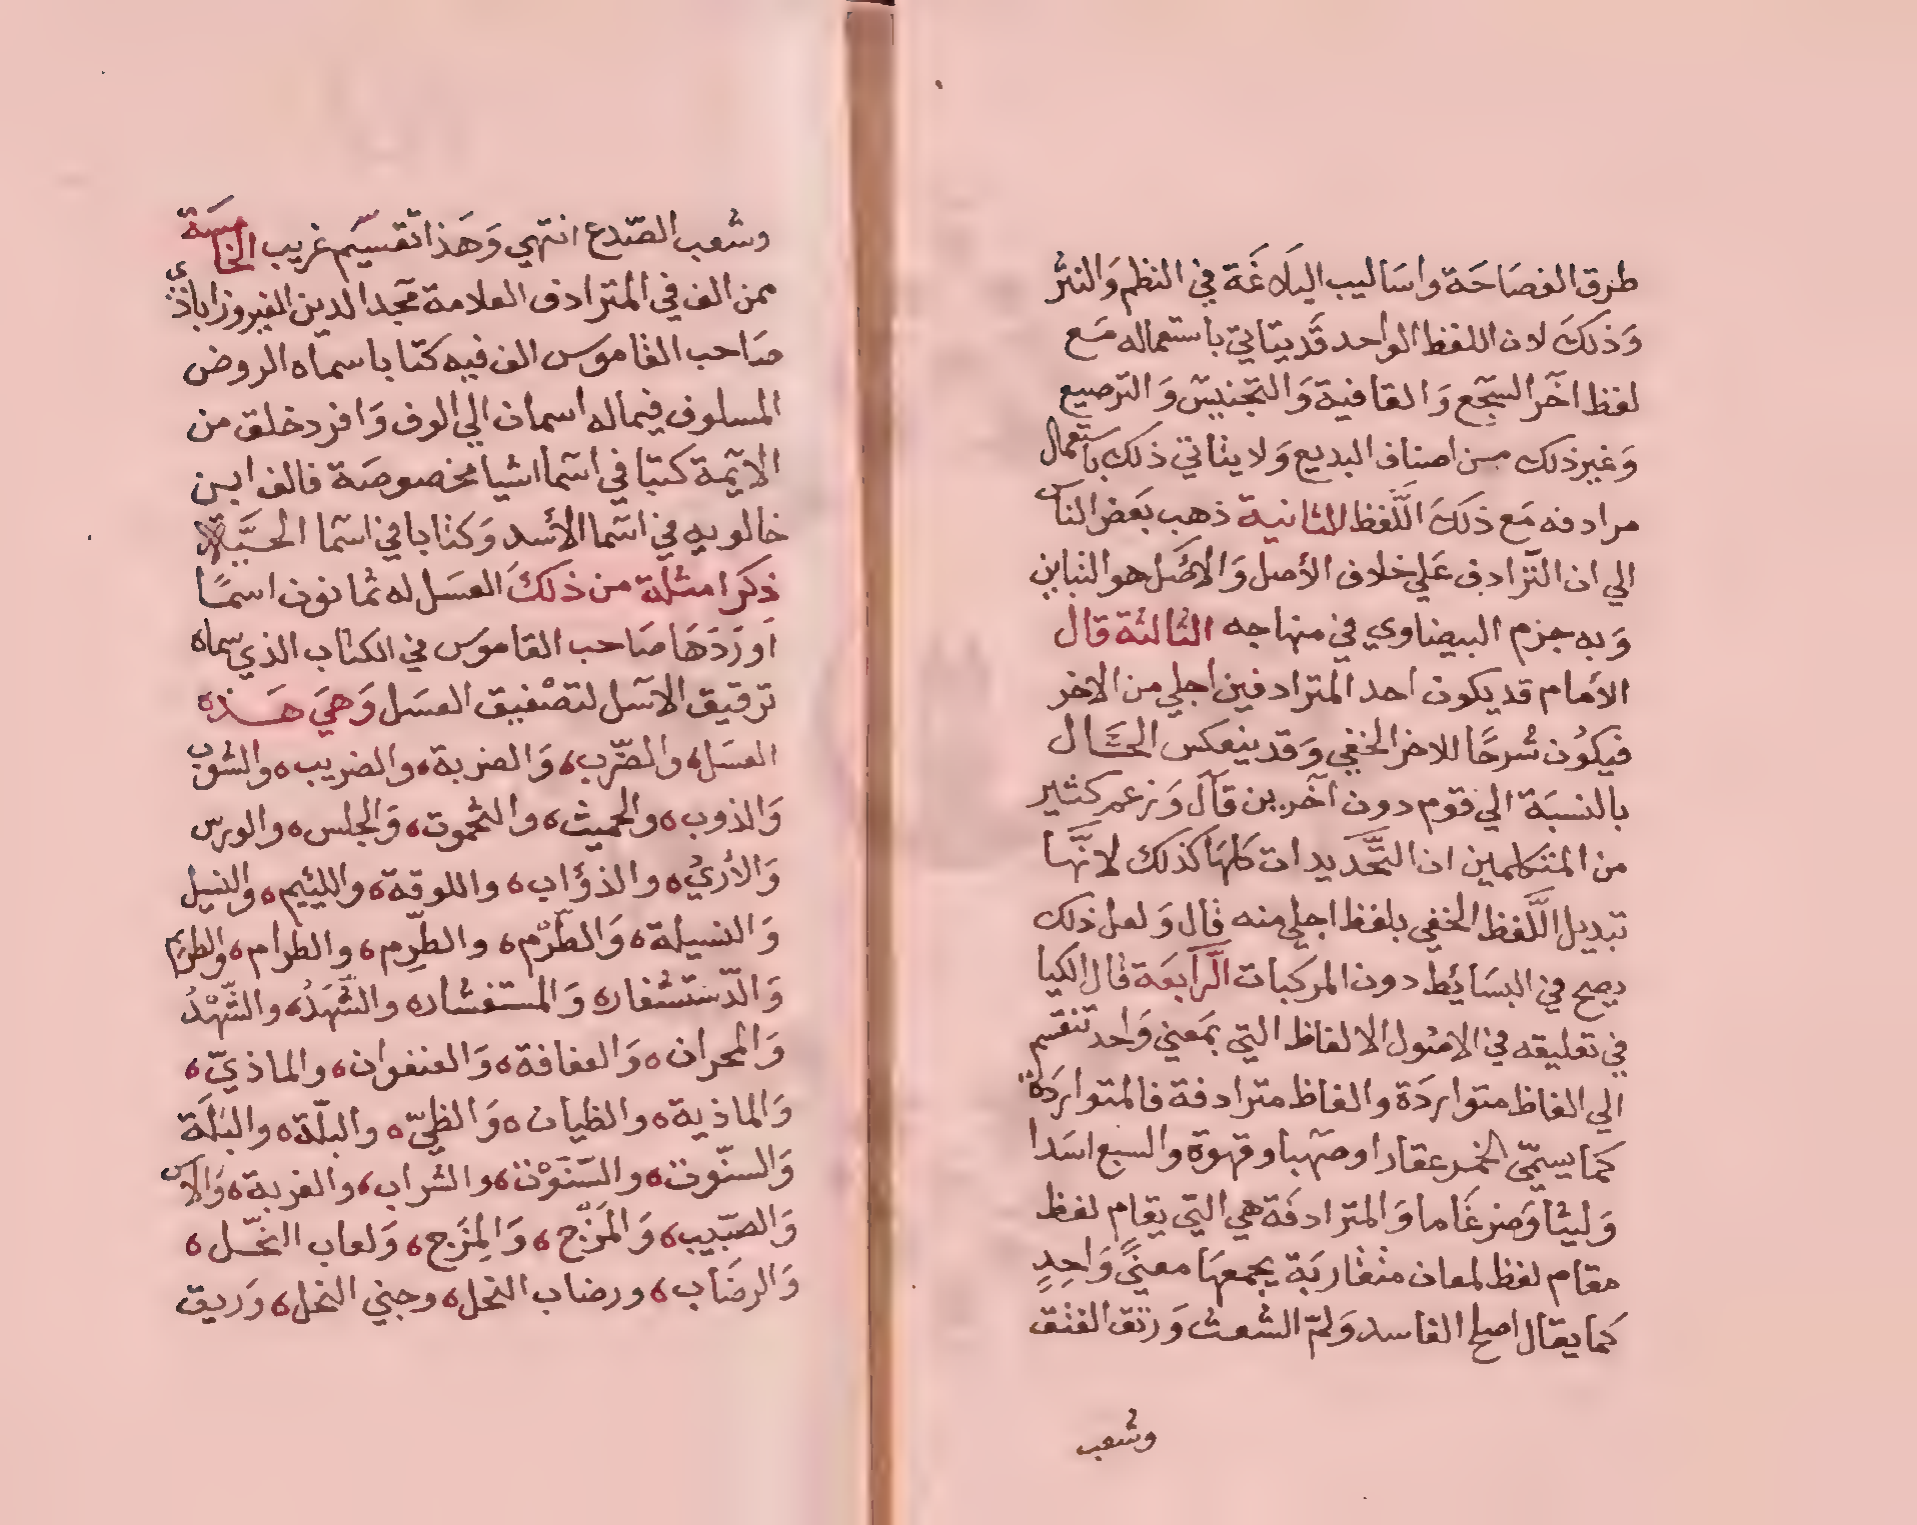 طرق الفصَاحَة واسَاليب البَلاغَة في النظم وَالنثر
وَذلكَ لان اللفظ الواحد قد يتاتي باستعماله مَع
لفظ اخر السَّجع وَالقافية وَالتجنيس وَالترصيع
وَغير ذلك من اصناف البديع وَلا يتاتي ذلك باستعمال
مرادفه مَع ذلكَ اللَّفظ الثانية ذهب بَعض الناس
الي ان الترَادف عَلي خلاف الأصل وَالأصل هو التباين
وَبه جزم البيضاوي في منهاجه الثالثة قال
الأمام قد يكون احد المترادفين اجلي من الاخر
فيكوُن شرحًا للاخر الخفي وَقد ينعكس الحَال
بالنسبَة الي قوم دون آخرين قال وَزعم كثير
من المتكلمين ان التَّحديدات كلهَا كذلك لانَّها
تبديل اللَّفظ الخفي بلفظ اجلي منه قال وَلعل ذلك
يصح في البسَائِط دون المركبات الرَّابعَة قال الكيا
في تعليقه في الاصُول الالفاظ التي بمَعني وَاحد تنقسم
الي الفاظ متواردَة والفاظ مترادفة فالمتواردَة
كما يسمّي الخمر عقارا وصَهبا وقهوة والسبع اسَدا
وَليثا وَضرغَاما وَالمترادفَة هي التي يقام لفظ
مقام لفظ لمعان متقاربَة يجمعهَا معنيً وَاحِدٍ
كما يقال اصلح الفاسد وَلمّ الشعث وَرتق الفتق
وشعب
وشعب الصّدع انتهي وَهَذا تقسيم غريب الخامسَة
ممن الف في المترادف العلامة مجد الدين الفيروزاباذي
صَاحب القاموس الف فيه كتابا سماه الروض
المسلوف فيما له اسمان الي الوف وَافرد خلق من
الايمة كتبا في اسما اشيا مخصوصَة فالف ابن
خالويه في اسما الأسد وَكتابا في اسما الحيَّة
ذكر امثلة من ذلكَ العسَل له ثمانون اسمًا
اَوردَهَا صَاحب القاموَس في الكتاب الذي سماه
ترقيق الاسَل لتصْفيق العسَل وَهيَ هَذه
العسَل والضّرب وَالضربة والضريب والشوب
وَالذوب والحميث والتحموت وَالجلس والورس
وَالأري والذؤاب واللوقة واللئيم والنسِيل
وَالنسيلة وَالطَّرْم والطِّرم والطرام والطريم
وَالدّستشفار وَالمستفشار والشهَدُ والشَّهْدُ
وَالمحران وَالعفافة وَالعنفوان والماذيّ
وَالماذية والظيان وَالظيّ والبلّة والبلَة
وَالسنّوت والسّنَوْت والشراب والغربة وَالاس
وَالصَبيب وَالمَزْج وَالمِزَج وَلعاب النحّل
وَالرضَاب ورضاب النحل وجني النحل وَريق